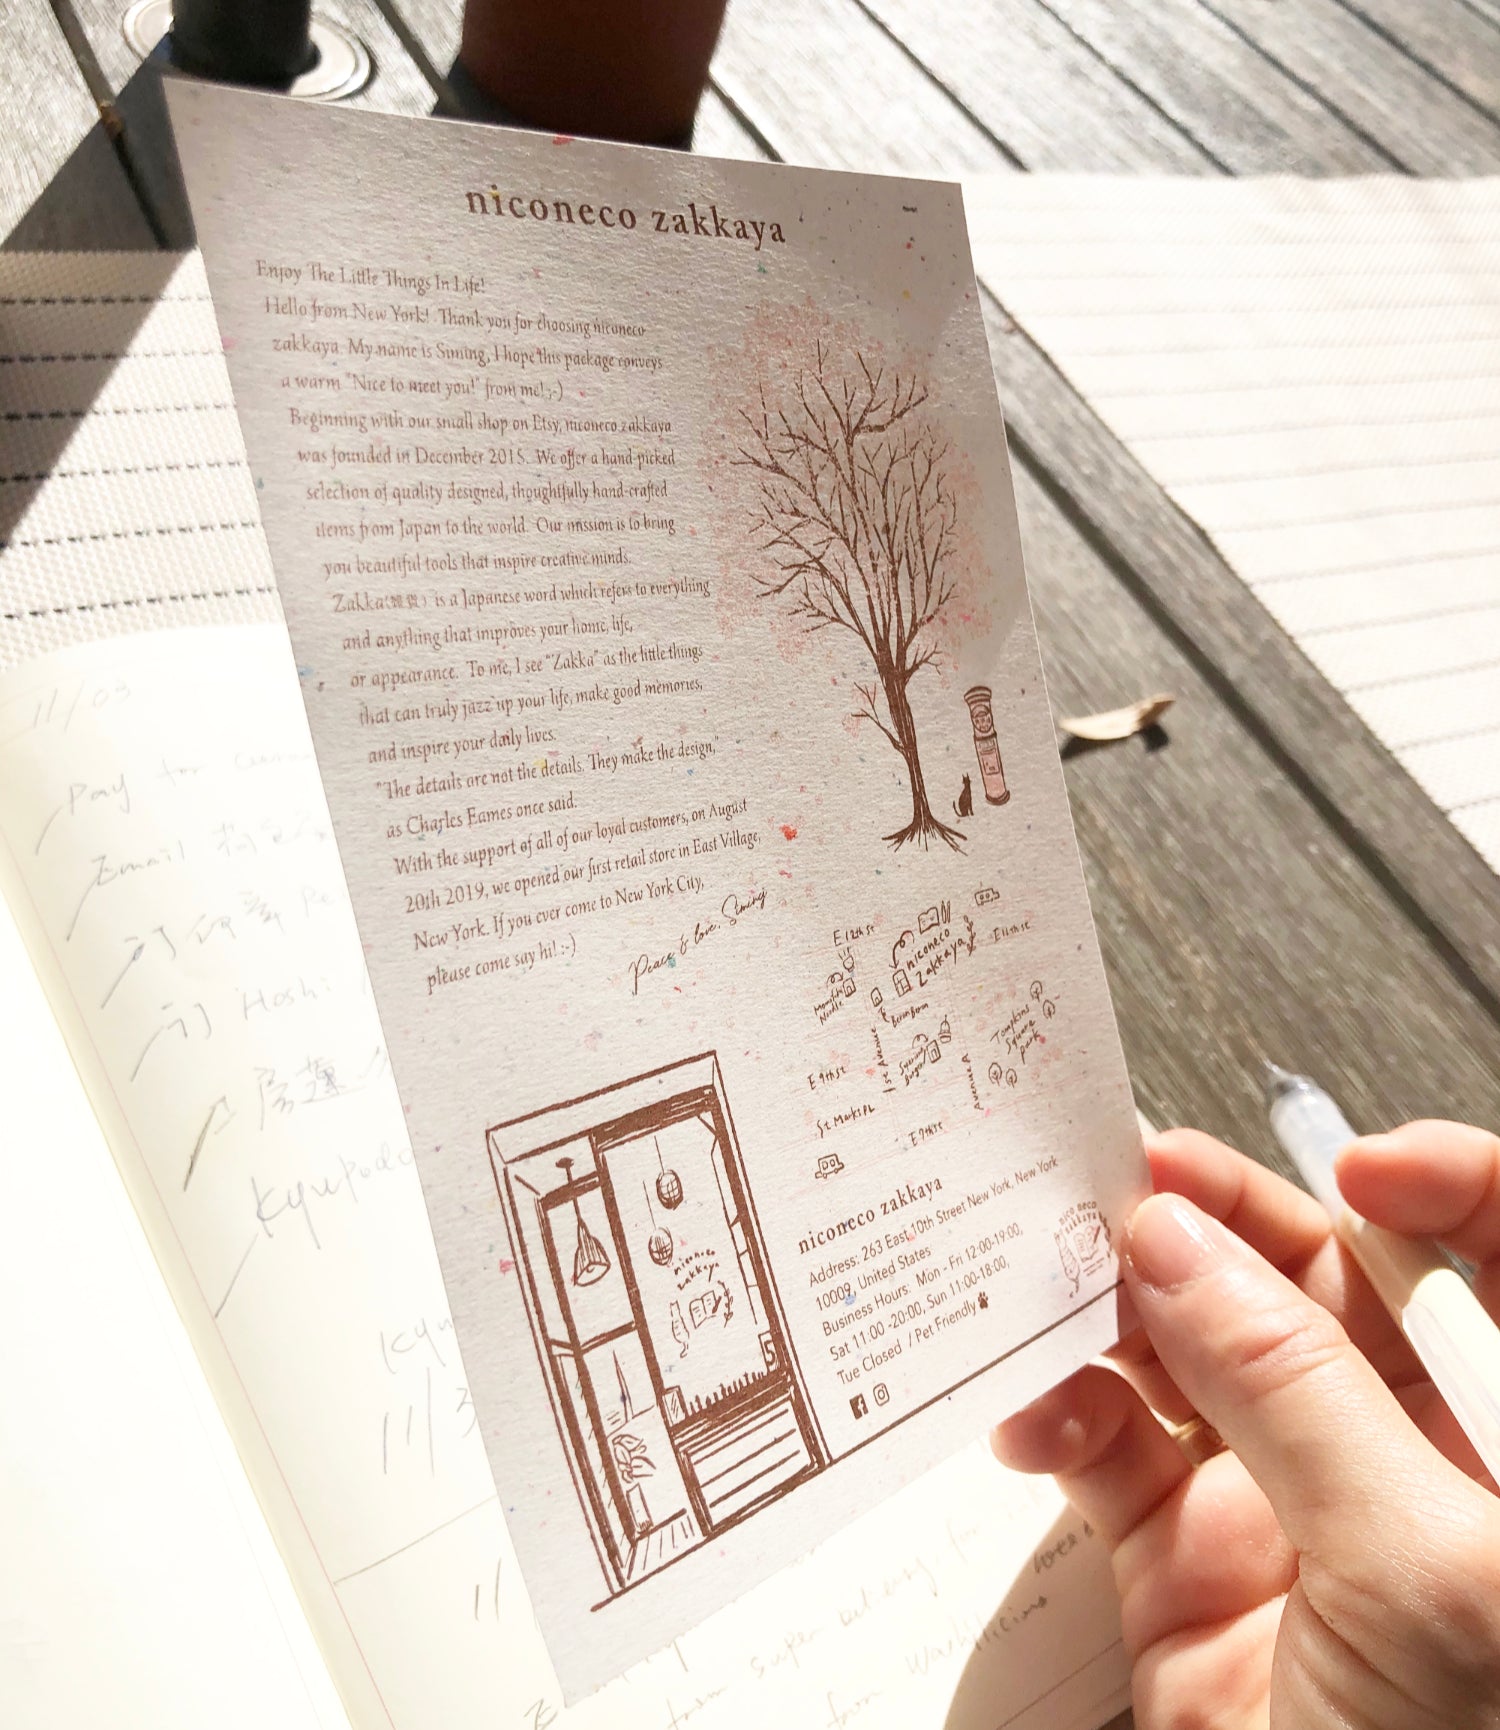 niconeco zakkaya
Enjoy The Little Things In Life!
Hello from New York! Thank you for choosing niconeco
zakkaya. My name is Siming, I hope this package conveys
a warm "Nice to meet you!" from me! ;-)
Beginning with our small shop on Etsy, niconeco zakkaya
was founded in December 2015. We offer a hand-picked
selection of quality designed, thoughtfully hand-crafted
items from Japan to the world. Our mission is to bring
you beautiful tools that inspire creative minds.
Zakka(雑貨) is a Japanese word which refers to everything
and anything that improves your home, life,
or appearance. To me, I see "Zakka" as the little things
that can truly jazz up your life, make good memories,
and inspire your daily lives.
"The details are not the details. They make the design,"
as Charles Eames once said.
With the support of all of our loyal customers, on August
20th 2019, we opened our first retail store in East Village,
New York. If you ever come to New York City,
please come say hi! :-)
Peace & love, Siming
E 12th St
E 11th St
niconeco
zakkaya
Momofuku
Noodle
1st Avenue
Avenue A
Tompkins
Square
Park
E 9th St
St Marks PL
E 7th St
niconeco
zakkaya
niconeco zakkaya
Address: 263 East 10th Street New York, New York
10009, United States
Business Hours: Mon - Fri 12:00-19:00,
Sat 11:00 -20:00, Sun 11:00-18:00,
Tue Closed / Pet Friendly
nico neco
zakkaya
11/03
Pay for
Email
Hoshi
Kyupodo
11/3
11
from super
from Washilicious